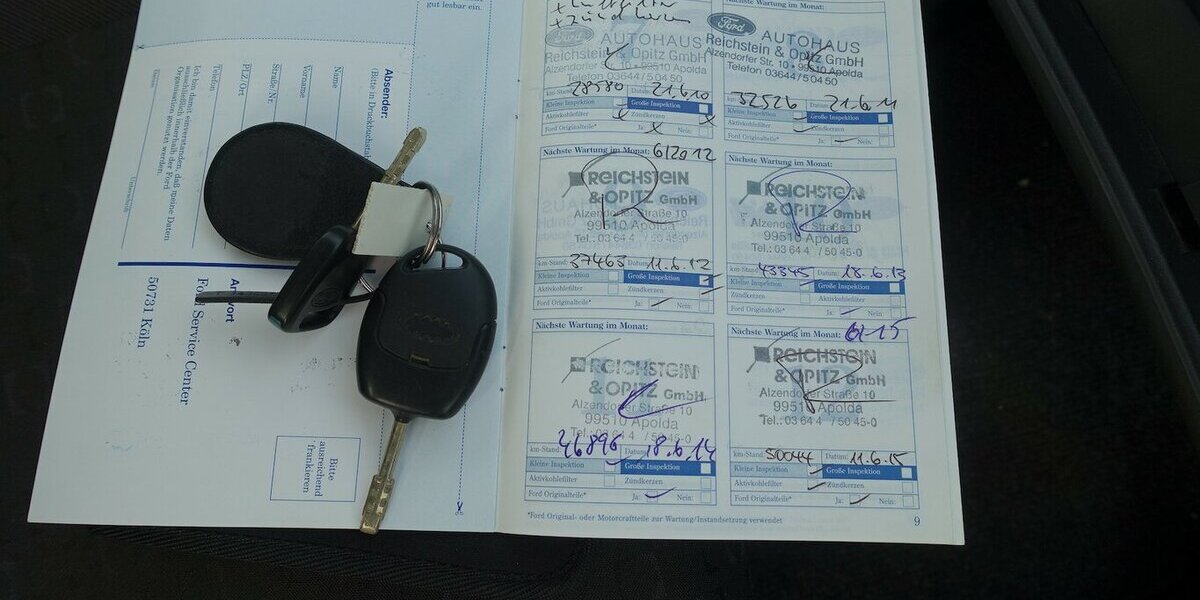 gut lesbar ein.
Absender:
(Bitte in Druckbuchsta
Name
Vorname
Straße/Nr.
PLZ/Ort
Telefon
Ich bin damit einverstanden, daß meine Daten
ausschließlich innerhalb der Ford
Organisation genutzt werden.
Datum
Unterschrift
An
wort
Fo
Service Center
50731 Köln
Bitte
ausreichend
frankieren
Nächste Wartung im Monat:
Ford AUTOHAUS
Reichstein & Opitz GmbH
Alzendorfer Str. 10 • 99510 Apolda
Telefon 03644/50450
km-Stand: 28580 Datum: 21.6.10
Kleine Inspektion Große Inspektion
Aktivkohlefilter Zündkerzen
Ford Originalteile* Ja: Nein:
Nächste Wartung im Monat:
Ford AUTOHAUS
Reichstein & Opitz GmbH
Alzendorfer Str. 10 • 99510 Apolda
Telefon 03644/50450
km-Stand: 32526 Datum: 21.6.11
Kleine Inspektion Große Inspektion
Aktivkohlefilter Zündkerzen
Ford Originalteile* Ja: Nein:
Nächste Wartung im Monat: 6/2012
REICHSTEIN
& OPITZ GmbH
Alzendorfer Straße 10
99510 Apolda
Tel.: 03644 / 50 45-0
km-Stand: 37463 Datum: 11.6.12
Kleine Inspektion Große Inspektion
Aktivkohlefilter Zündkerzen
Ford Originalteile* Ja: Nein:
Nächste Wartung im Monat:
REICHSTEIN
& OPITZ GmbH
Alzendorfer Straße 10
99510 Apolda
Tel.: 03644 / 50 45-0
km-Stand: 43345 Datum: 18.6.13
Kleine Inspektion Große Inspektion
Zündkerzen Aktivkohlefilter
Ford Originalteile* Ja: Nein:
Nächste Wartung im Monat:
REICHSTEIN
& OPITZ GmbH
Alzendorfer Straße 10
99510 Apolda
Tel.: 03644 / 50 45-0
km-Stand: 46896 Datum: 18.6.14
Kleine Inspektion Große Inspektion
Aktivkohlefilter Zündkerzen
Ford Originalteile* Ja: Nein:
Nächste Wartung im Monat: 6/15
REICHSTEIN
& OPITZ GmbH
Alzendorfer Straße 10
99510 Apolda
Tel.: 03644 / 50 45-0
km-Stand: 50044 Datum: 11.6.15
Kleine Inspektion Große Inspektion
Aktivkohlefilter Zündkerzen
Ford Originalteile* Ja: Nein:
*Ford Original- oder Motorcraftteile zur Wartung/Instandsetzung verwendet
9